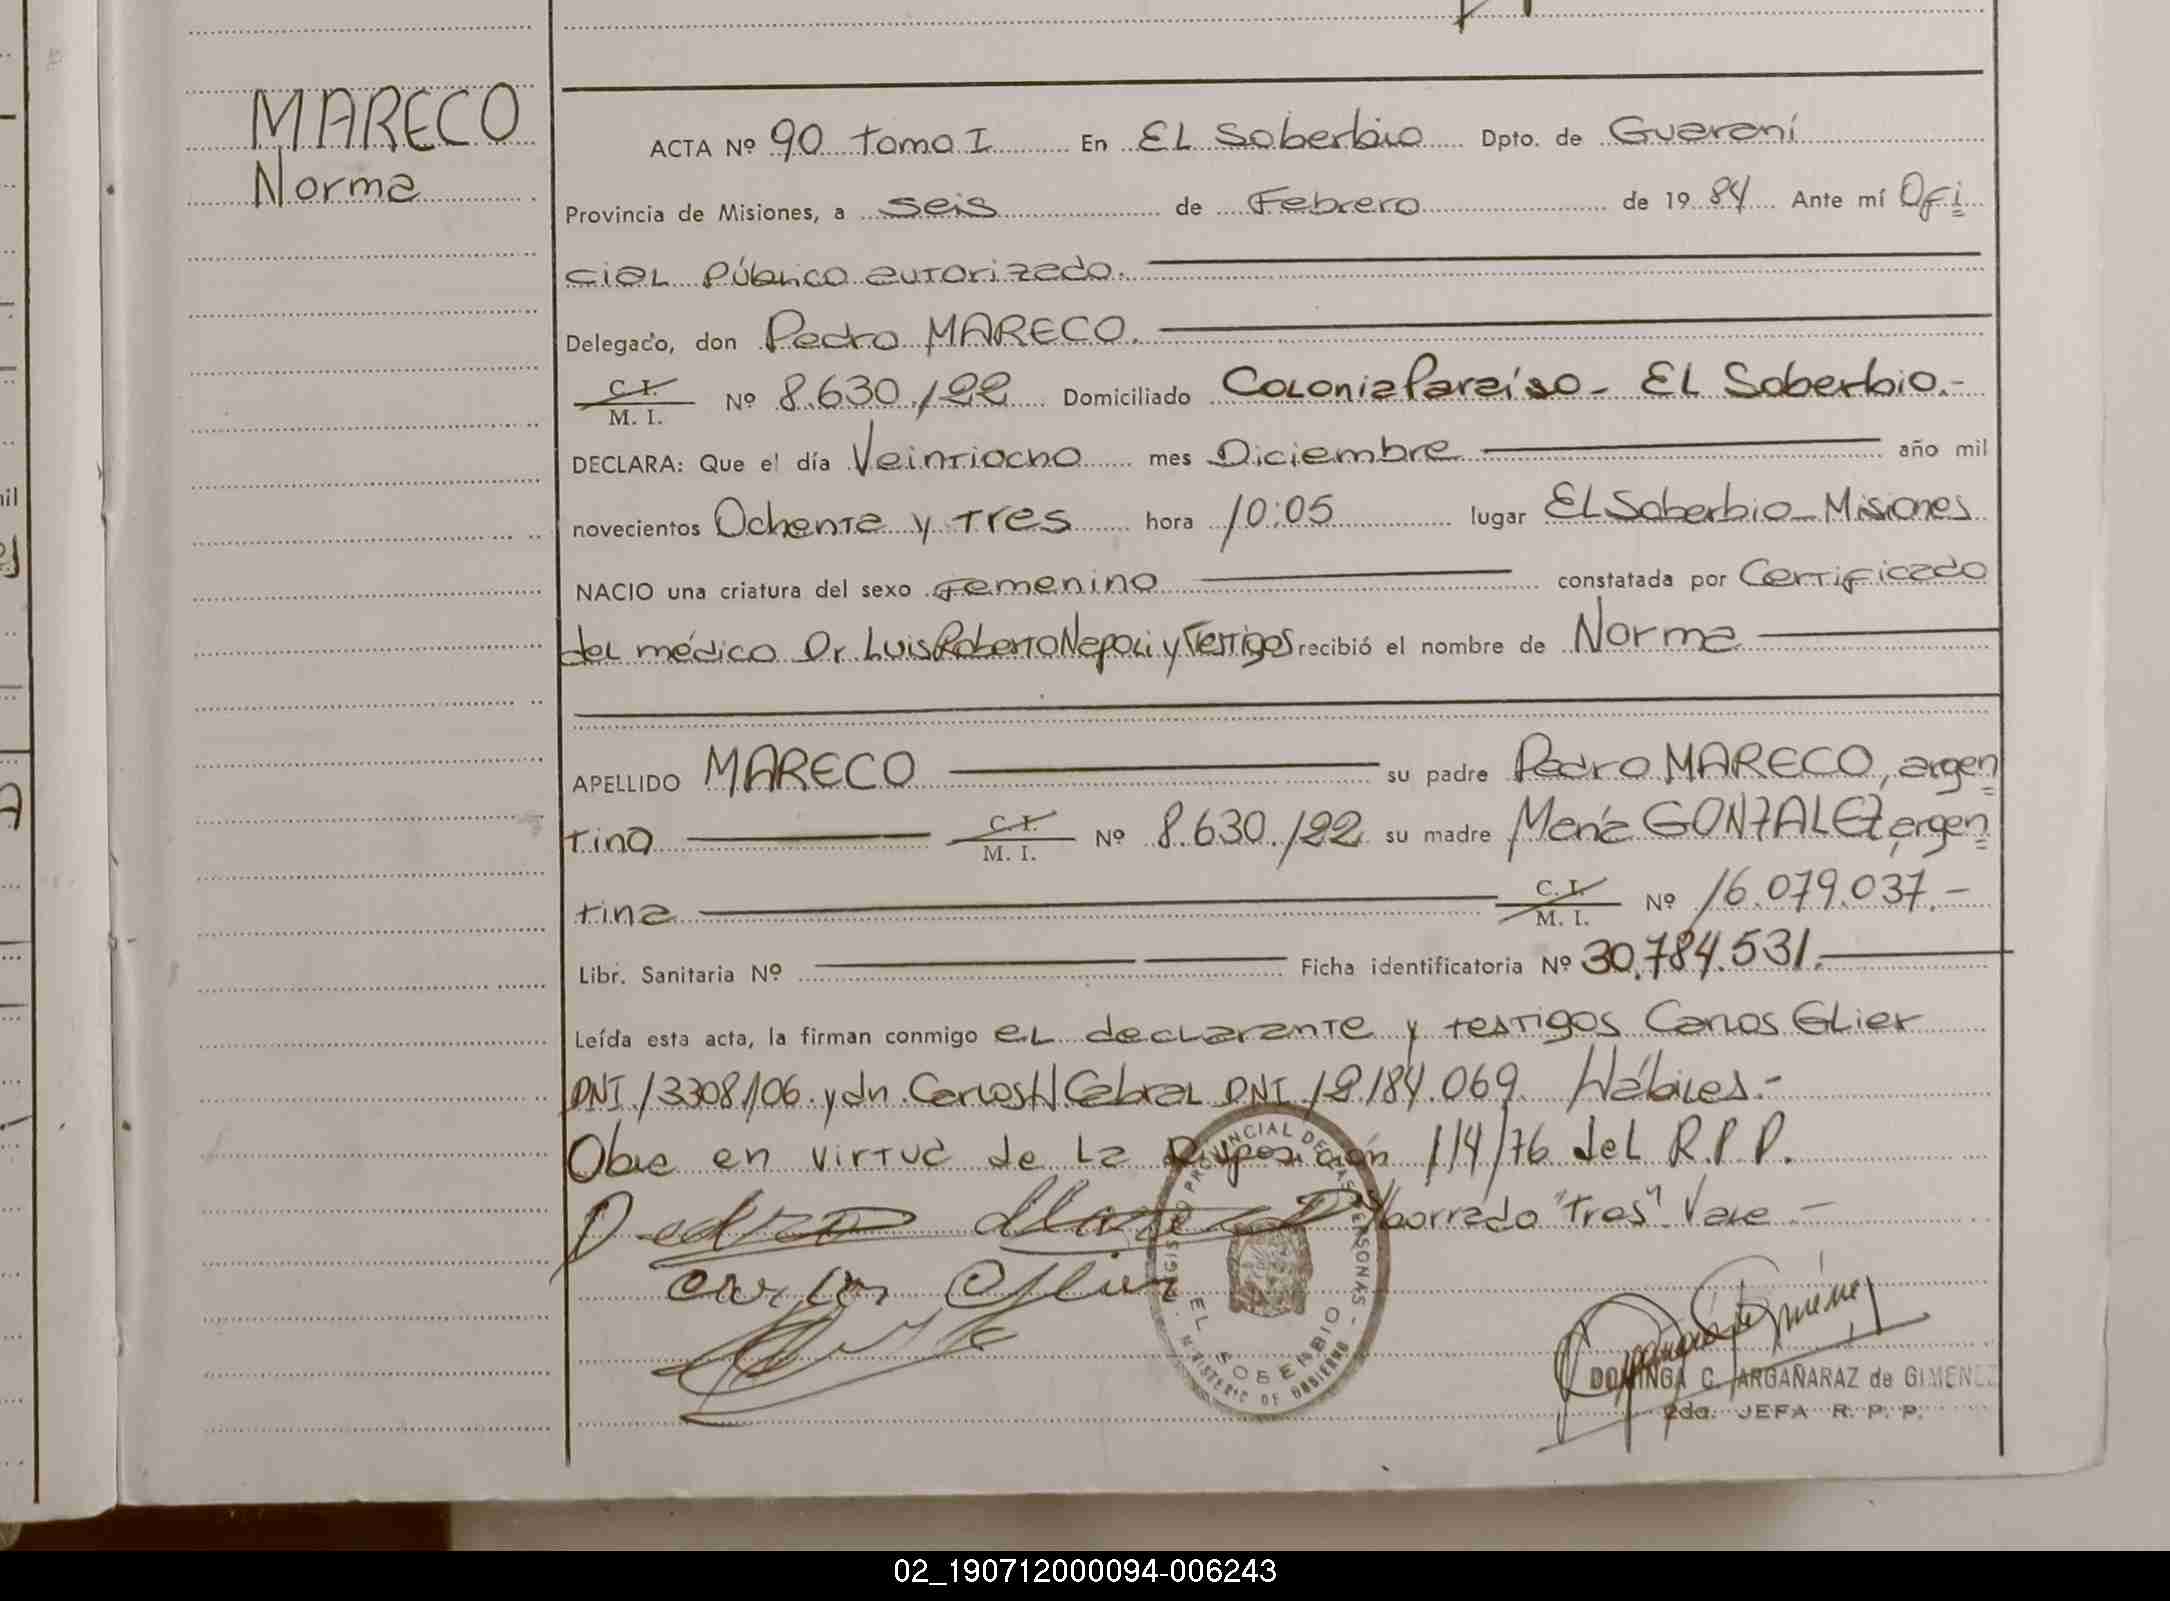 MARECO
Norma
ACTA Nº 90 tomo I En EL Soberbio Dpto. de Guaraní
Provincia de Misiones, a seis de Febrero de 19 84 Ante mí Ofi
ciaL Público autorizado.
Delegado, don Pedro MARECO.
C. I.
M. I. Nº 8.630.122 Domiciliado Colonia Paraíso - EL Soberbio.-
DECLARA: Que el día Veintiocho mes Diciembre año mil
novecientos Ochenta y tres hora 10:05 lugar EL Soberbio - Misiones
NACIO una criatura del sexo Femenino constatada por Certificado
del médico Dr Luis Roberto Napoli y Testigos recibió el nombre de Norma
APELLIDO MARECO su padre Pedro MARECO, argen
tino C. I.
M. I. Nº 8.630.122 su madre María GONZALEZ, argen
tina C. I.
M. I. Nº 16.079.037.-
Libr. Sanitaria Nº Ficha identificatoria Nº 30.784.531.
Leída esta acta, la firman conmigo el declarante y testigos Carlos Glier
DNI 13308106 y dn Carlos H Cabral DNI 12184.069 Hábiles.-
Obre en virtud de la Disposición 114/76 del R.P.P.
Pedro Mareco S/borrado "tres" Vale -
Carlos Glier
REGISTRO PROVINCIAL DE LAS PERSONAS -
EL SOBERBIO
MINISTERIO DE GOBIERNO
DOMINGA C. ARGAÑARAZ de GIMENEZ
2da. JEFA R. P. P.
02_190712000094-006243